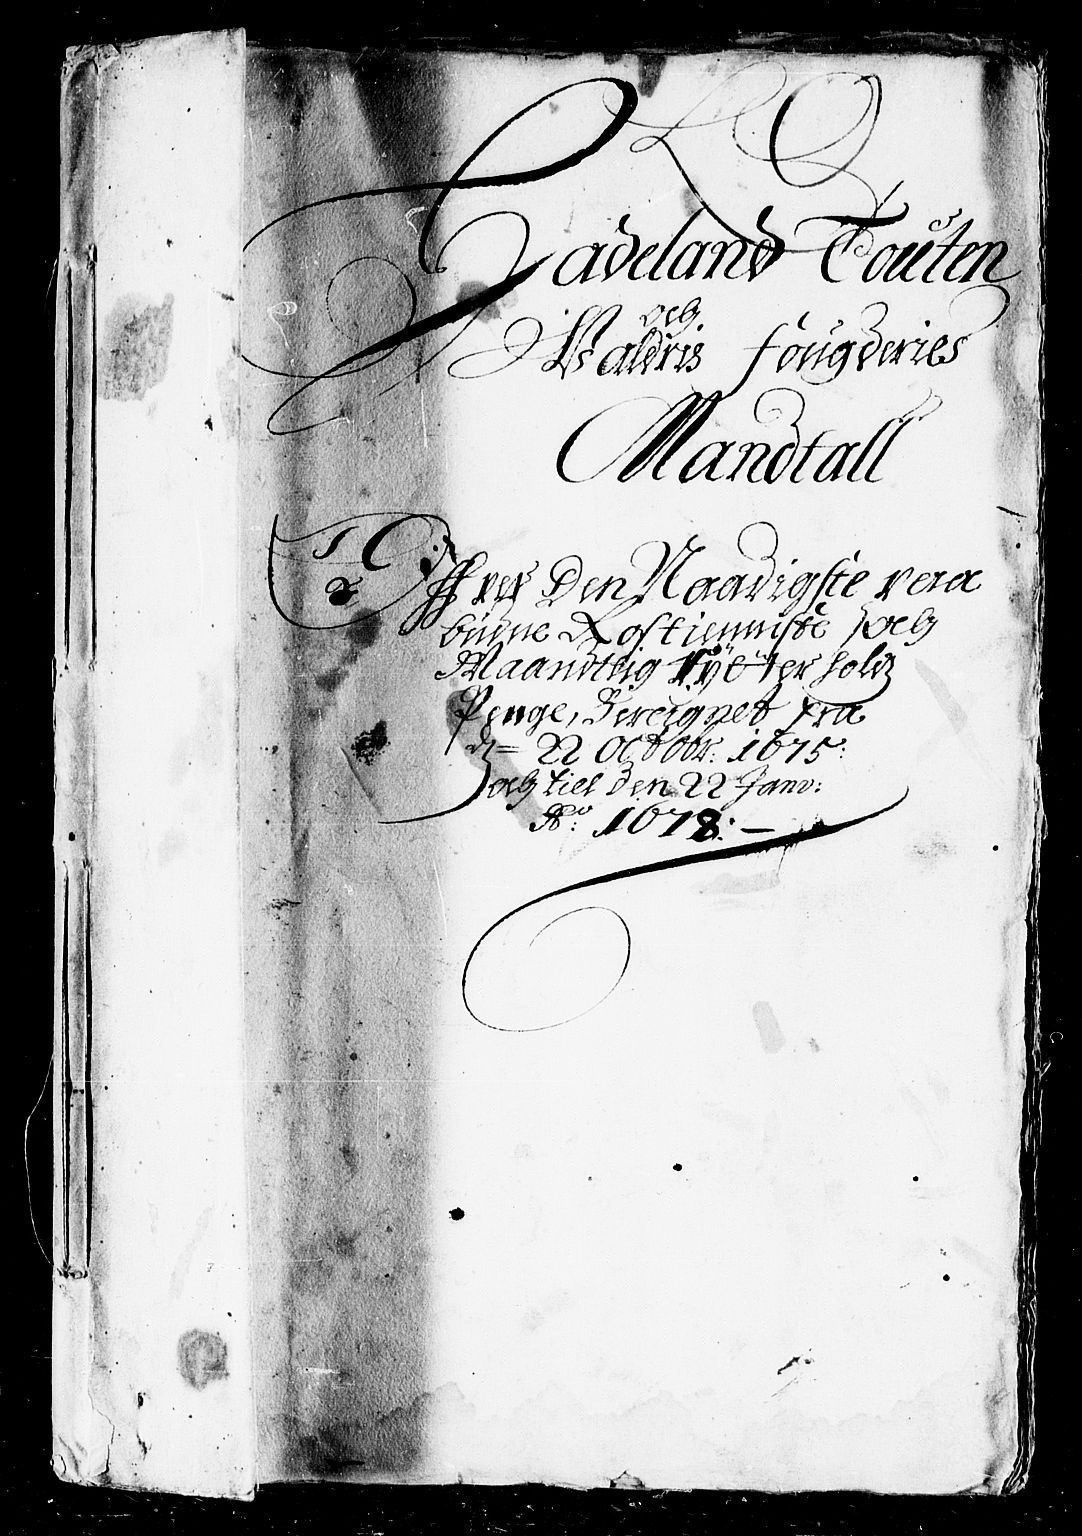 Hadeland Touten
och
Valdris fougderies
Mandtall
Offver den Naadigste paa
budne Rostienniste och
Maandtlig Rytter hold
Penge, Bereignet fra
22 Octobr: 1675:
och till den 22 Janv:
Aº: 1678: